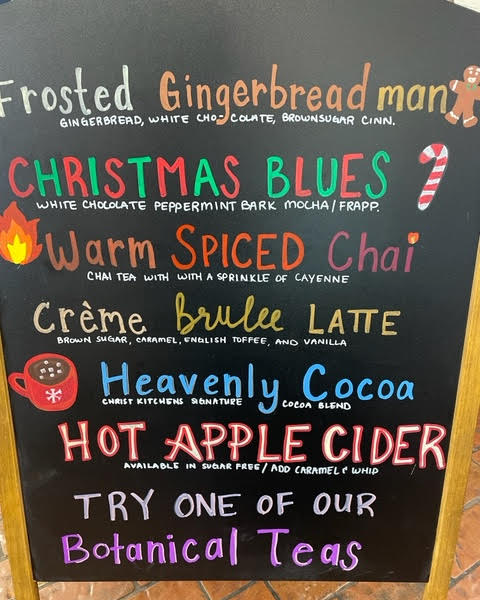 Frosted Gingerbread man
GINGERBREAD, WHITE CHO-COLATE, BROWNSUGAR CINN.
CHRISTMAS BLUES
WHITE CHOCOLATE PEPPERMINT BARK MOCHA/FRAPP.
Warm SPICED Chai
CHAI TEA WITH WITH A SPRINKLE OF CAYENNE
Crème Brulee LATTE
BROWN SUGAR, CARAMEL, ENGLISH TOFFEE, AND VANILLA
Heavenly Cocoa
CHRIST KITCHENS SIGNATURE COCOA BLEND
HOT APPLE CIDER
AVAILABLE IN SUGAR FREE/ ADD CARAMEL & WHIP
TRY ONE OF OUR
Botanical Teas